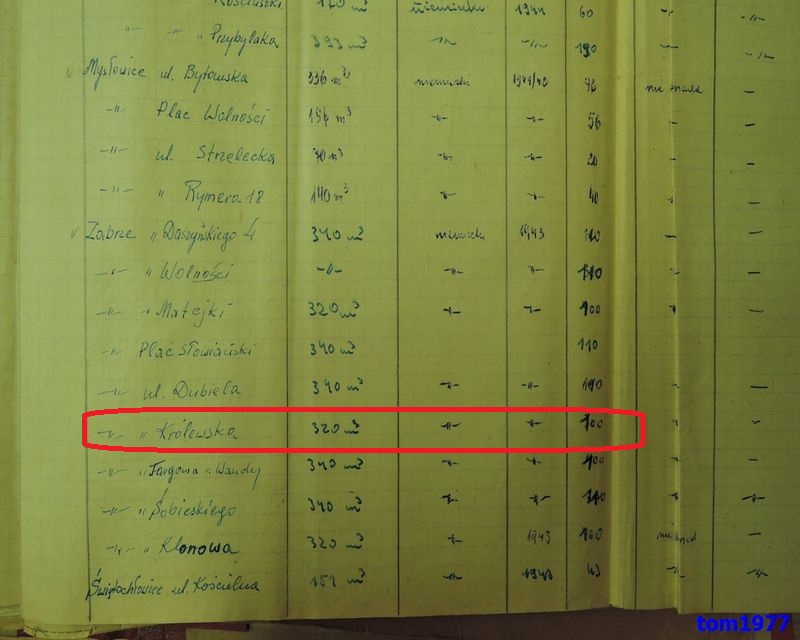 Kościuszki 170 m³ niemiecki 1944 60 -"-
-"- -"- " Przybylaka 393 m³ -"- -"- 130 -"- -"-
Mysłowice ul. Bytowska 336 m³ niemiecki 1941/42 96 -
-"- Plac Wolności 196 m³ -"- -"- 56 - -
-"- ul. Strzelecka 70 m³ -"- -"- 20 - -
-"- " Rymera 18 140 m³ -"- -"- 40 -
Zabrze " Daszyńskiego 4 340 m³ niemiecki 1943 110 - -
-"- " Wolności -"- -"- -"- 110 - -
-"- " Matejki 320 m³ -"- -"- 100 -"- -
-"- Plac Słowiański 340 m³ 110
-"- ul. Dubiela 340 m³ -"- -"- - -
-"- " Królewska 320 m³ -"- -"- 100 -"- -
-"- " Targowa r. Wandy 340 m³ -"- -"- 100 - -
-"- " Sobieskiego 340 m³ -"- -"- 110 -"- -"-
-"- " Klonowa 320 m³ -"- 1943 100 -
Świętochłowice ul. Kościelna 151 m³ -"- 1943 43 -"- -"-
tom1977